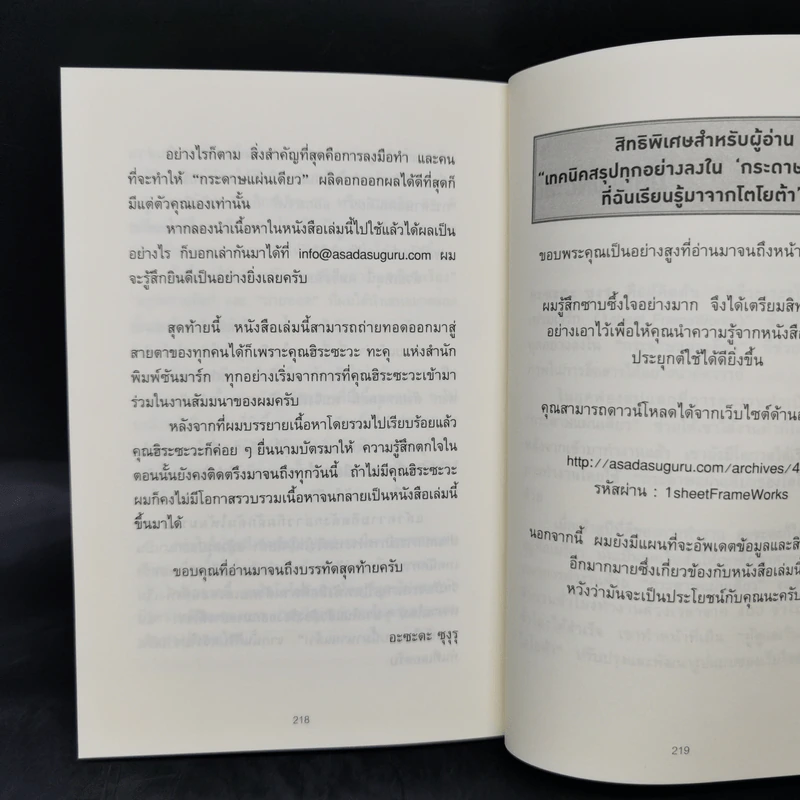 อย่างไรก็ตาม สิ่งสำคัญที่สุดคือการลงมือทำ และคน
ที่จะทำให้ “กระดาษแผ่นเดียว” ผลิดอกออกผลได้ดีที่สุดก็
มีแต่ตัวคุณเองเท่านั้น
หากลองนำเนื้อหาในหนังสือเล่มนี้ไปใช้แล้วได้ผลเป็น
อย่างไร ก็บอกเล่ากันมาได้ที่ info@asadasuguru.com ผม
จะรู้สึกยินดีเป็นอย่างยิ่งเลยครับ
สุดท้ายนี้ หนังสือเล่มนี้สามารถถ่ายทอดออกมาสู่
สายตาของทุกคนได้ก็เพราะคุณฮิระซะวะ ทะคุ แห่งสำนัก
พิมพ์ซันมาร์ก ทุกอย่างเริ่มจากการที่คุณฮิระซะวะเข้ามา
ร่วมในงานสัมมนาของผมครับ
หลังจากที่ผมบรรยายเนื้อหาโดยรวมไปเรียบร้อยแล้ว
คุณฮิระซะวะก็ค่อย ๆ ยื่นนามบัตรมาให้ ความรู้สึกตกใจใน
ตอนนั้นยังคงติดตรึงมาจนถึงทุกวันนี้ ถ้าไม่มีคุณฮิระซะวะ
ผมก็คงไม่มีโอกาสรวบรวมเนื้อหาจนกลายเป็นหนังสือเล่มนี้
ขึ้นมาได้
ขอบคุณที่อ่านมาจนถึงบรรทัดสุดท้ายครับ
อะซะดะ ซุงุรุ
218
สิทธิพิเศษสำหรับผู้อ่าน
“เทคนิคสรุปทุกอย่างลงใน ‘กระดาษ
ที่ฉันเรียนรู้มาจากโตโยต้า”
ขอบพระคุณเป็นอย่างสูงที่อ่านมาจนถึงหน้า
ผมรู้สึกซาบซึ้งใจอย่างมาก จึงได้เตรียมสิท
อย่างเอาไว้เพื่อให้คุณนำความรู้จากหนังสือ
ประยุกต์ใช้ได้ดียิ่งขึ้น
คุณสามารถดาวน์โหลดได้จากเว็บไซต์ด้าน
http://asadasuguru.com/archives/4
รหัสผ่าน : 1sheetFrameWorks
นอกจากนี้ ผมยังมีแผนที่จะอัพเดตข้อมูลและสิ
อีกมากมายซึ่งเกี่ยวข้องกับหนังสือเล่มนี้
หวังว่ามันจะเป็นประโยชน์กับคุณนะครับ
219